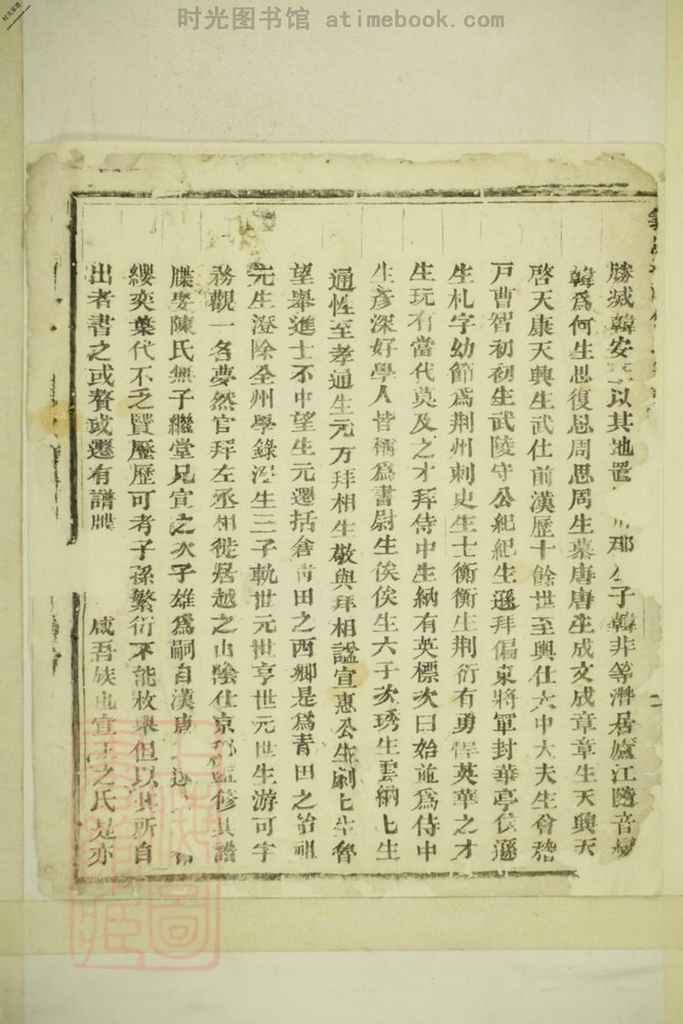 时光图书馆 atimebook.com
勝滅韓安王以其地置 郡公子韓非等潛居廬江隨音易
韓爲何生思復思周思周生慕唐唐生成文成章章生天興天
啓天康天興生武仕前漢歷十餘世至興仕太中大夫生會稽
戸曹智初初生武陵守公紀紀生遜拜偏東將軍封華亭侯遜
生札字幼節爲荆州刺史生士衡衡生荆衍有勇悍英華之才
生玩有當代莫及之才拜侍中生納有英標次曰始並爲侍中
生彦深好學人皆稱爲書尉生俟俟生六子次琇生雲納七生
通性至孝通生元方拜相生敬與拜相諡宣惠公生嗣七生魯
望舉進士不中望生元遷括倉青田之西鄉是爲青田之始祖
元生溍除全州學錄溍生三子軌世元世亨世元世生游可字
務觀一名夢然官拜左丞相徙居越之山陰仕京 監修其譜
牒娶陳氏無子繼堂兄宜之次子雄爲嗣自漢唐
纓奕葉代不乏賢歷歷可考子孫繁衍不能枚舉但以其所自
出者書之或贅或遷有譜牒 咸吾族也宜 之氏是亦